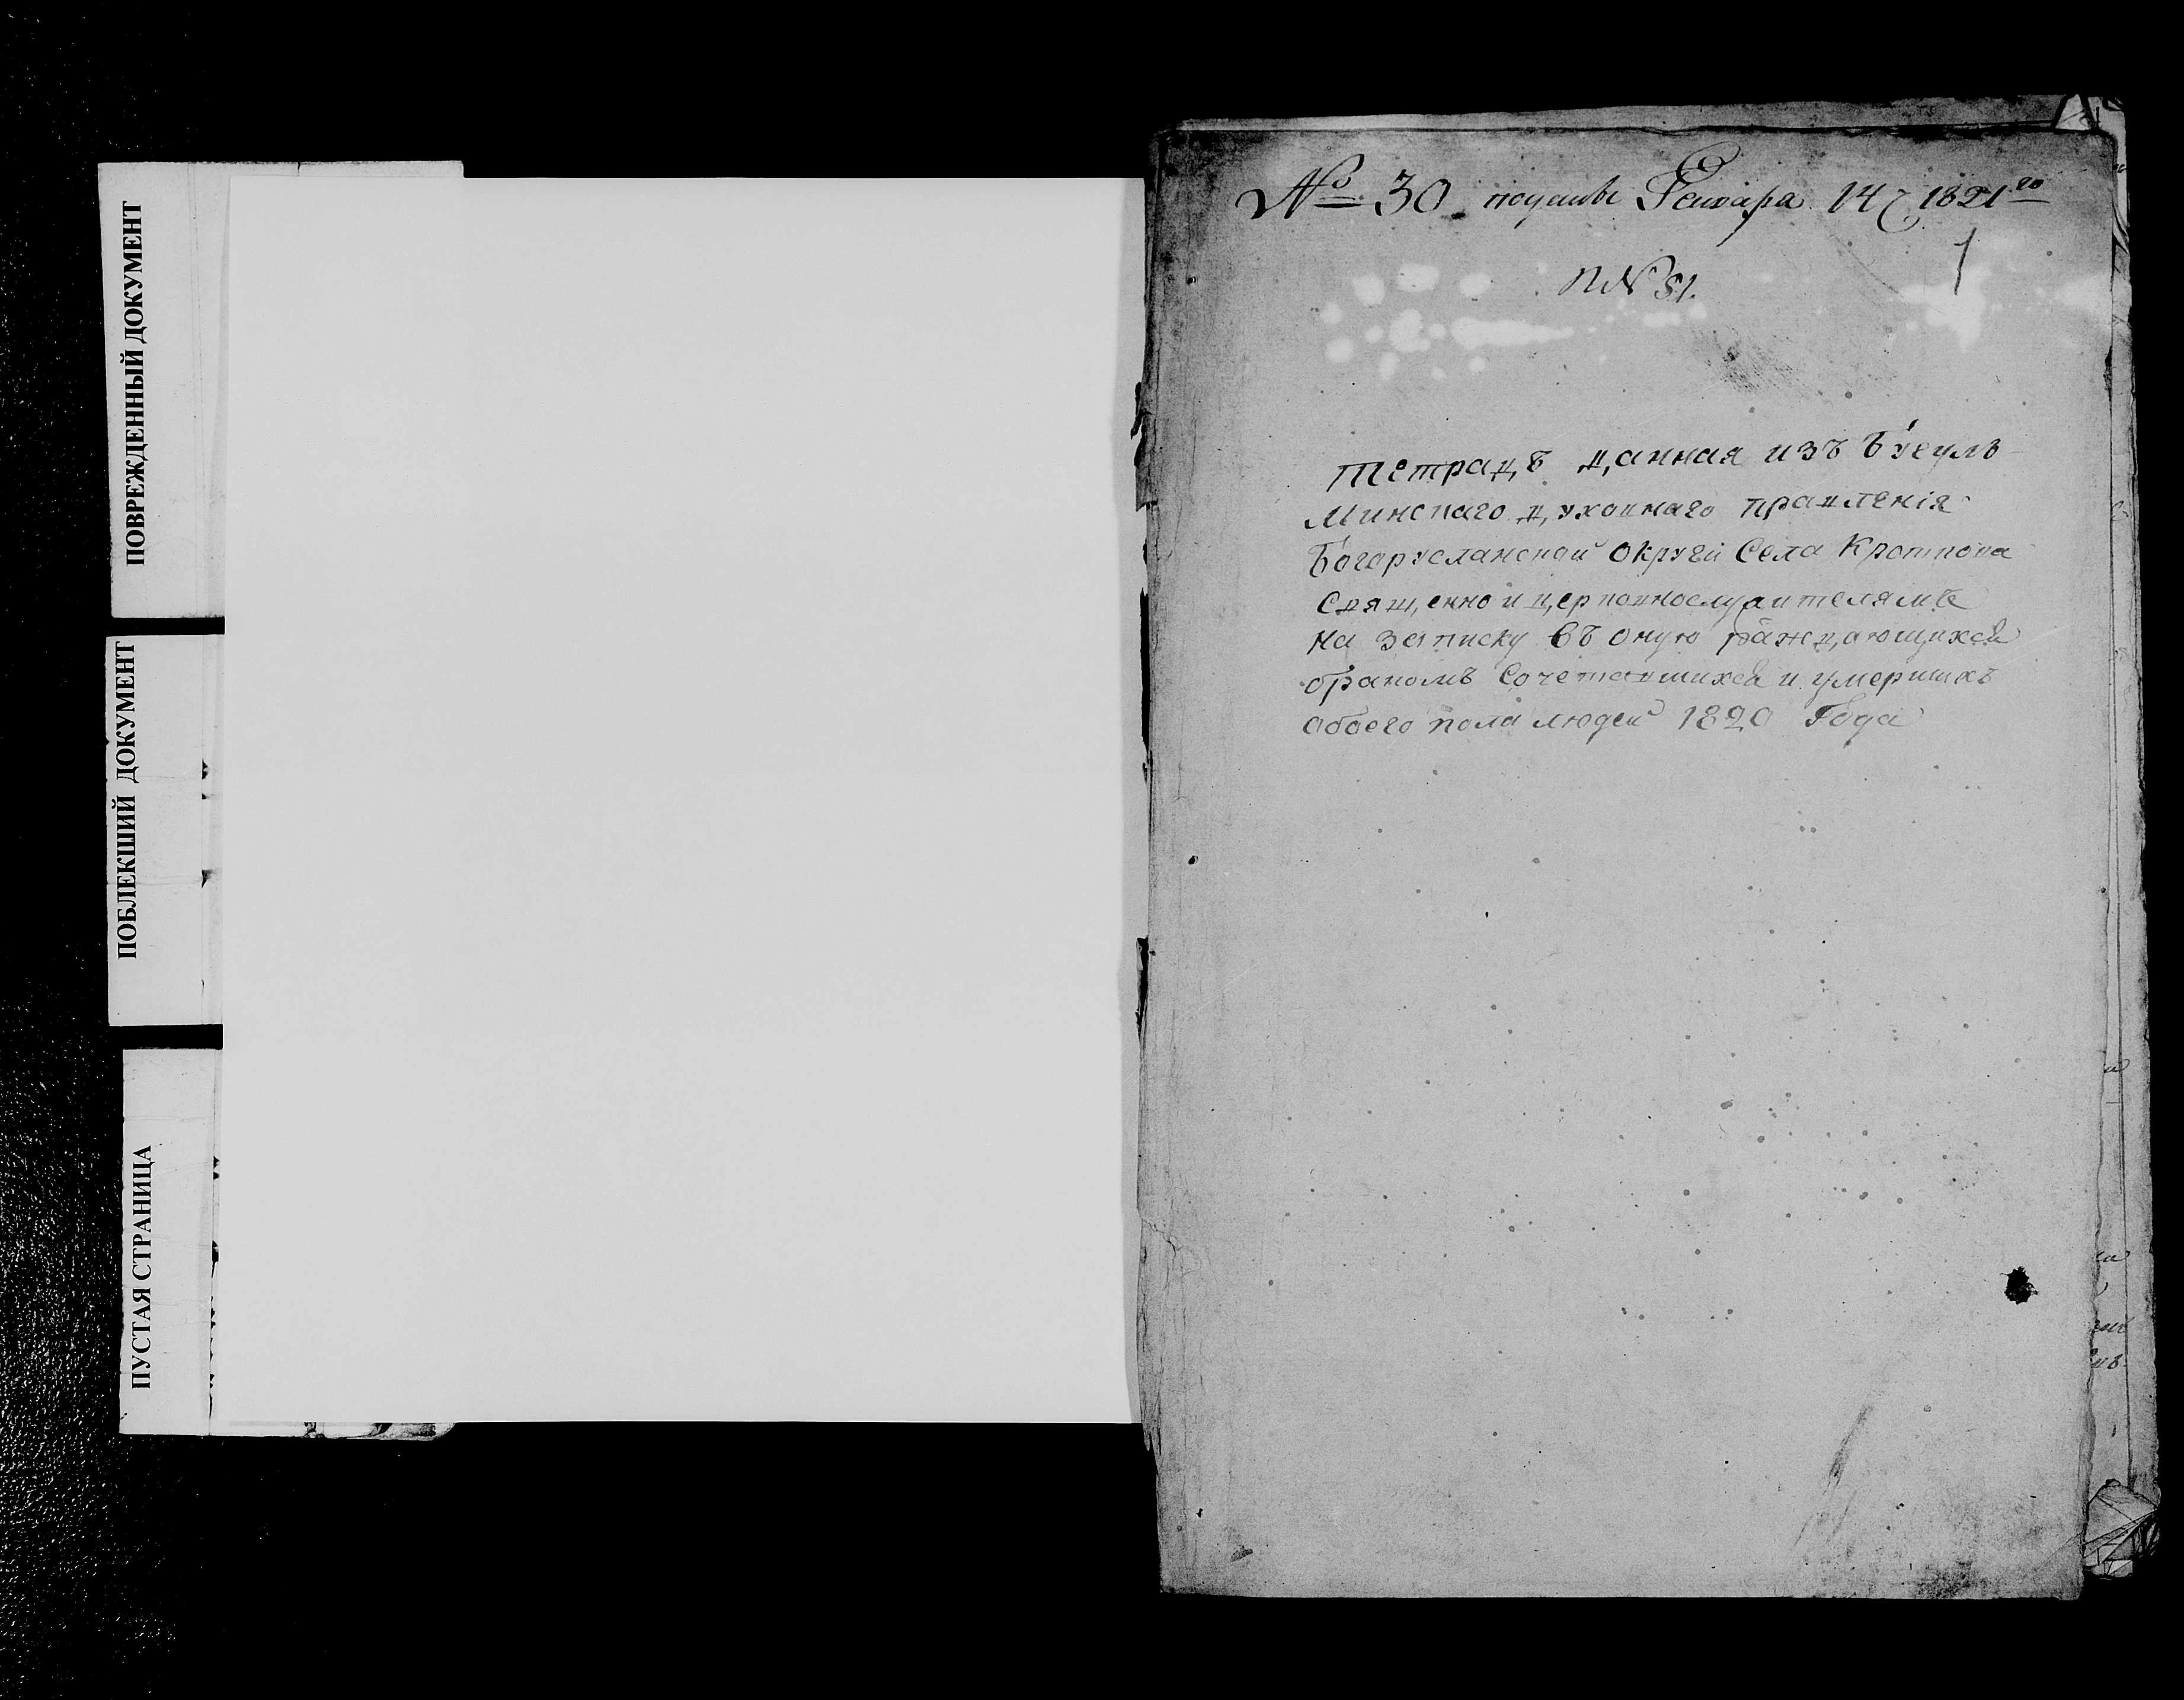 ПОВРЕЖДЕННЫЙ ДОКУМЕНТ
ПОБЛЕКШИЙ ДОКУМЕНТ
ПУСТАЯ СТРАНИЦА
№ 30 Генваря 14 1821го
1
№ 81.
Тетрадь данная изъ Бугуль
минскаго духовнаго правленія
Богорусланской округи Села Кроткова
Священно и церковнослужителямъ
на записку въ оную раждающихся
бракомъ Сочетавшихся и умершихъ
обоего пола людей 1820 Года